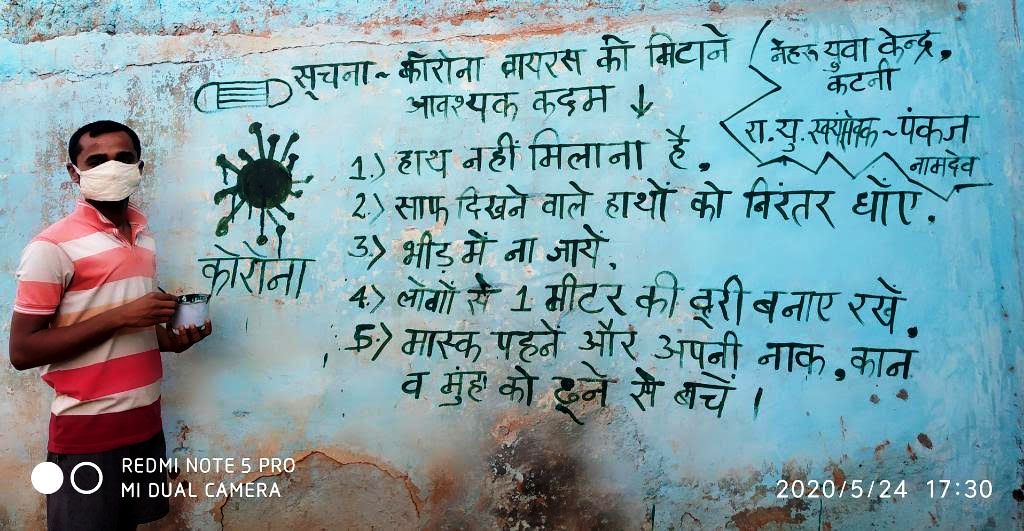 सूचना ~ कोरोना वायरस को मिटाने
आवश्यक कदम ↓
नेहरू युवा केन्द्र,
कटनी
रा.यु. स्वयंसेवक ~ पंकज
नामदेव
कोरोना
1.) हाथ नहीं मिलाना है.
2.) साफ दिखने वाले हाथों को निरंतर धोंए.
3.) भीड़ में ना जायें.
4.) लोगों से 1 मीटर की दूरी बनाए रखें.
5.) मास्क पहने और अपनी नाक, कान
व मुंह को छूने से बचें ।
REDMI NOTE 5 PRO
MI DUAL CAMERA
2020/5/24 17:30